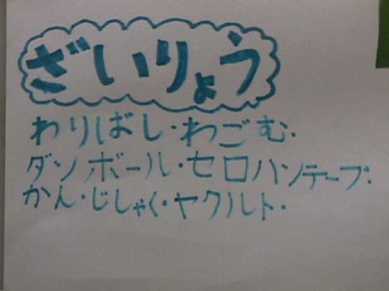 ざいりょう
わりばし・わごむ・
ダンボール・セロハンテープ・
かん・じしゃく・ヤクルト・